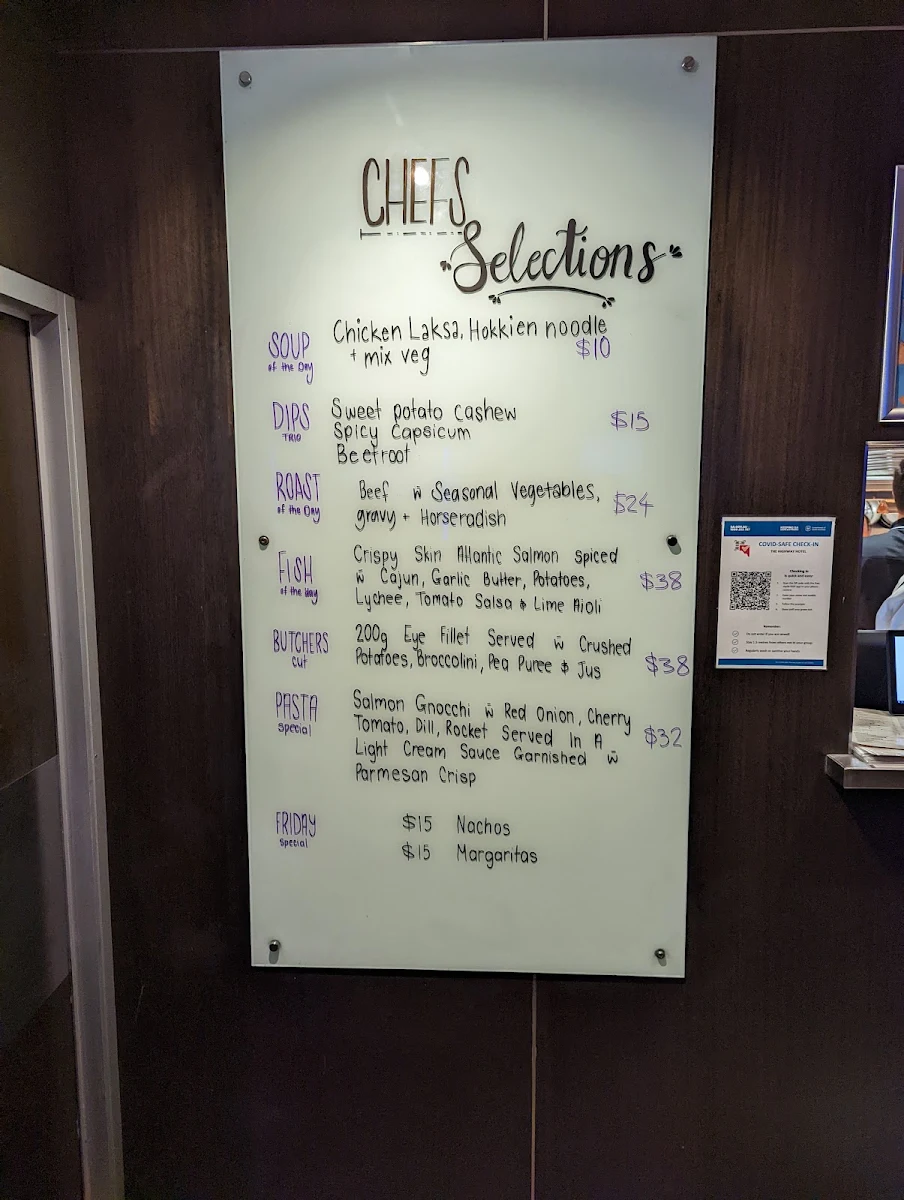 CHEFS
Selections
SOUP
of the Day
Chicken Laksa, Hokkien noodle
+ mix veg
$10
DIPS
TRIO
Sweet potato cashew
Spicy Capsicum
Beetroot
$15
ROAST
of the Day
Beef w Seasonal Vegetables,
gravy + Horseradish
$24
FISH
of the Day
Crispy Skin Atlantic Salmon spiced
w Cajun, Garlic Butter, Potatoes,
Lychee, Tomato Salsa & Lime Aioli
$38
BUTCHERS
cut
200g Eye Fillet Served w Crushed
Potatoes, Broccolini, Pea Puree & Jus
$38
PASTA
Special
Salmon Gnocchi w Red Onion, Cherry
Tomato, Dill, Rocket Served In A
Light Cream Sauce Garnished w
Parmesan Crisp
$32
FRIDAY
Special
$15 Nachos
$15 Margaritas
COVID-SAFE CHECK-IN
THE HIGHWAY HOTEL
Checking in
is quick and easy
Remember